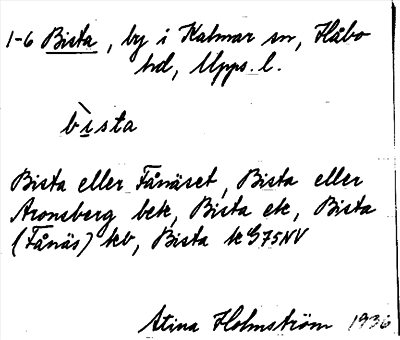 1-6 Bista, by i Kalmar sn, Håbo
hd, Upps. l.
bìsta
Bista eller Fånäset, Bista eller
Aronsberg bek, Bista ek, Bista
(Fånäs) kb, Bista k G75NV
Stina Holmström 1936